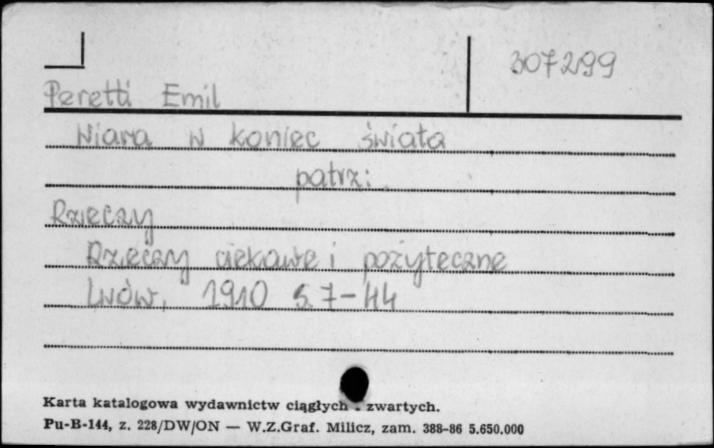 307299
Peretti Emil
Wiara w koniec świata
patrz:
Rzeczy
Rzeczy ciekawe i pożyteczne
Lwów, 1910 s. 7-44
Karta katalogowa wydawnictw ciągłych i zwartych.
Pu-B-144, z. 228/DW/ON — W.Z.Graf. Milicz, zam. 388-86 5.650.000